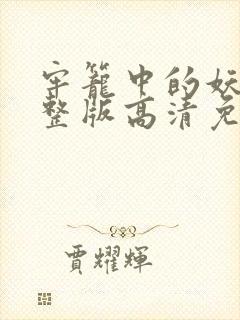 牢籠中的妖
整版高清免
賈耀輝